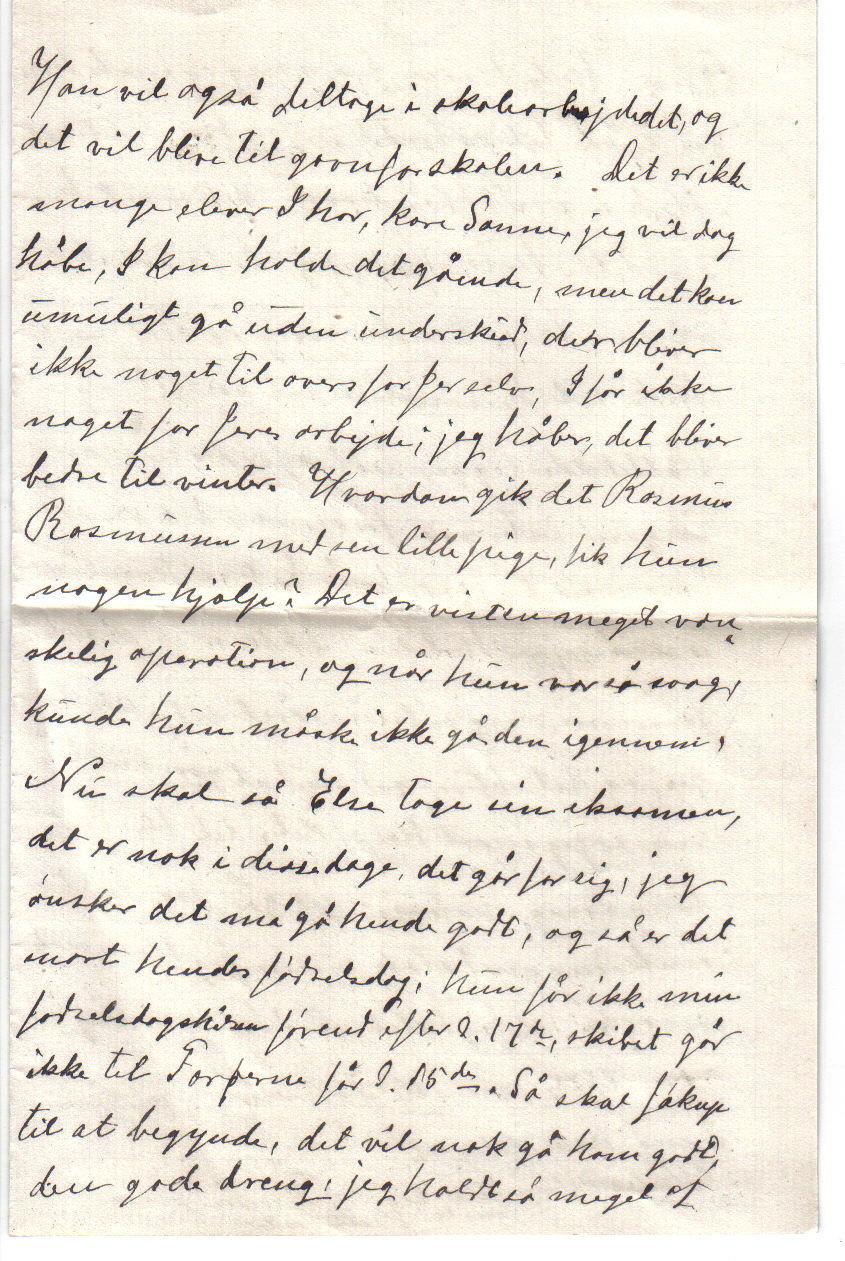 Han vil også deltage i skolearbejdedet, og
det vil blive til gavn for skolen. Det er ikke
mange elever I har, kære Sanne, jeg vil dog
håbe, I kan holde det gående, men det kan
umuligt gå uden underskud, der bliver
ikke noget til overs for Jer selv, I får ikke
noget for Jeres arbejde; jeg håber, det bliver
bedre til vinter. Hvordan gik det Rasmus
Rasmussen med sen lille pige, fik hun
nogen hjælp? Det er vist en meget van-
skelig operation, og når hun var så svag,
kunde hun måske ikke gå den igennem.
Nu skal så Else tage sin eksamen,
det er nok i disse dage, det går for sig; jeg
ønsker det må gå hende godt, og så er det
snart hendes fødselsdag; hun får ikke min
fødselsdagshilsen førend efter d. 17de, skibet går
ikke til Færøerne før d. 15des. Så skal Jákup
til at begynde, det vil nok gå ham godt,
den gode dreng; jeg holdt så meget af